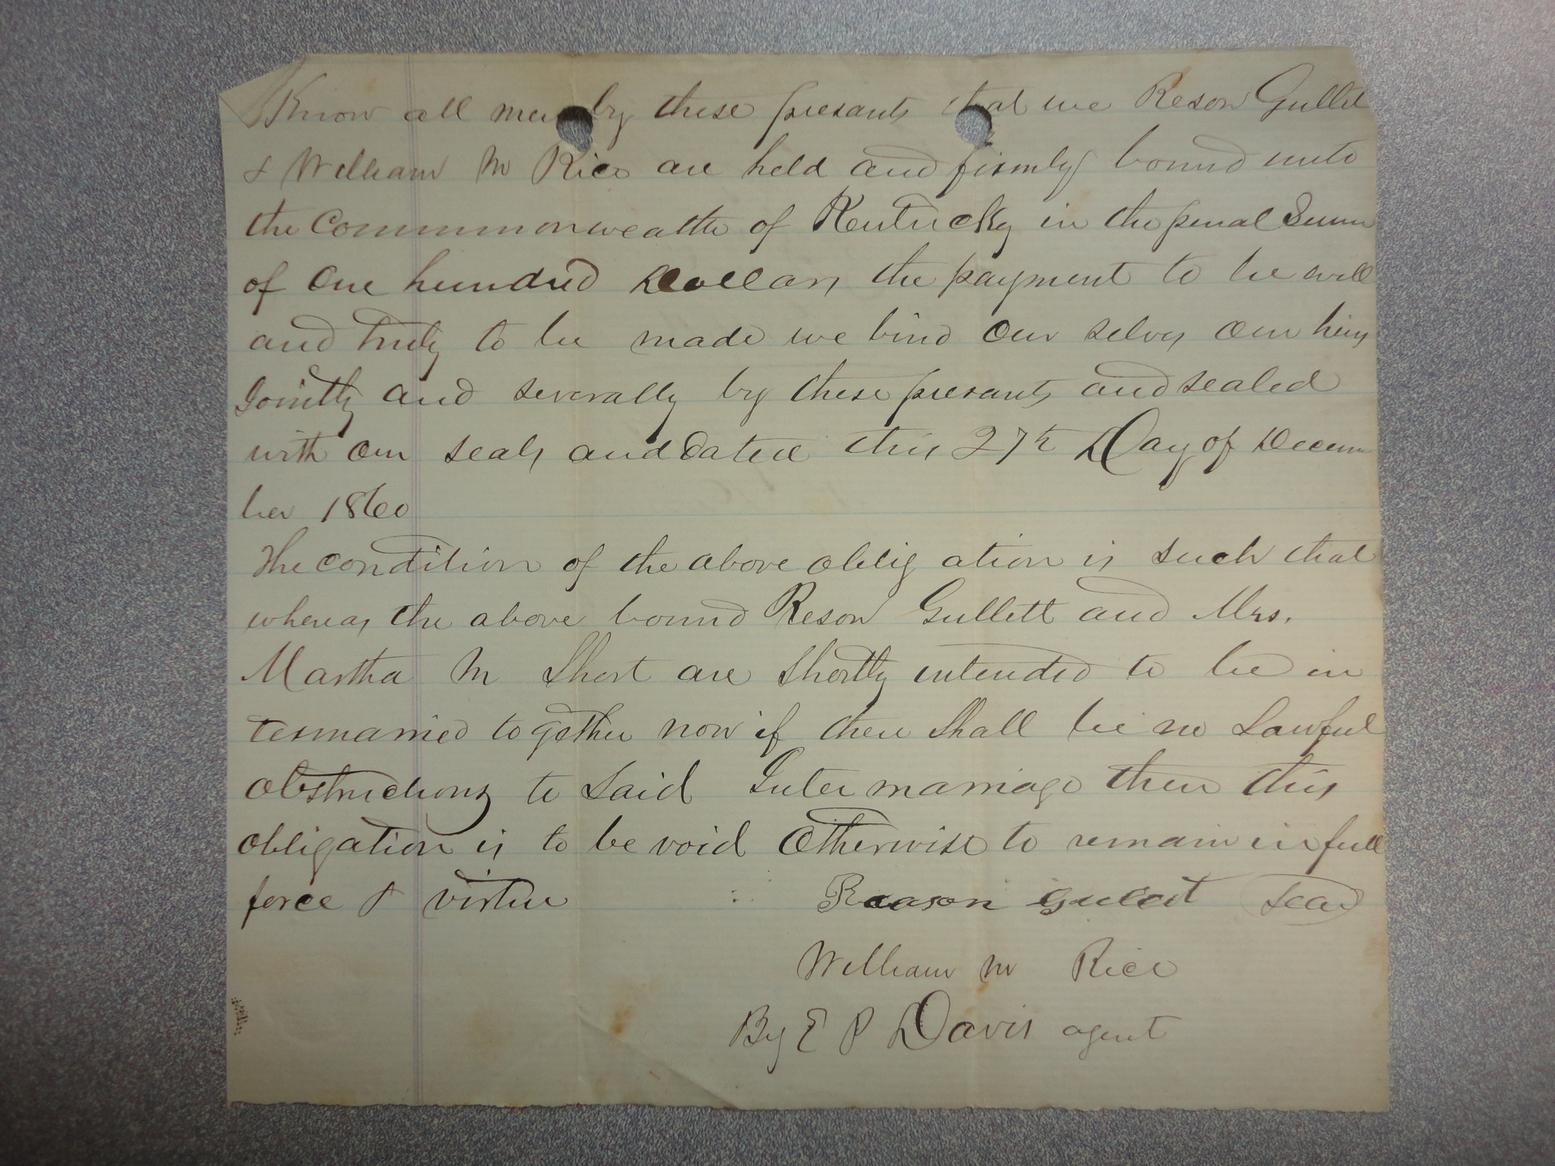 Know all men by these presants that we Reson Gullett
& William M Rice are held and firmly bound unto
the Commonwealth of Kentucky in the penal Sum
of One hundred Dollars the payment to be well
and truly to be made we bind our selvs our heirs
Jointly and severally by these presants and sealed
with our seals and dated this 27th Day of Decem
ber 1860
The condition of the above oblig ation is such that
whereas the above bound Reson Gullett and Mrs.
Martha M Short are Shortly intended to be in
termarried together now if there Shall be no Lawful
obstructions to Said Inter marriage then this
obligation is to be void Otherwise to remain in full
force & virtue Reason Gulett Seal
William M Rice
By E P Davis agent